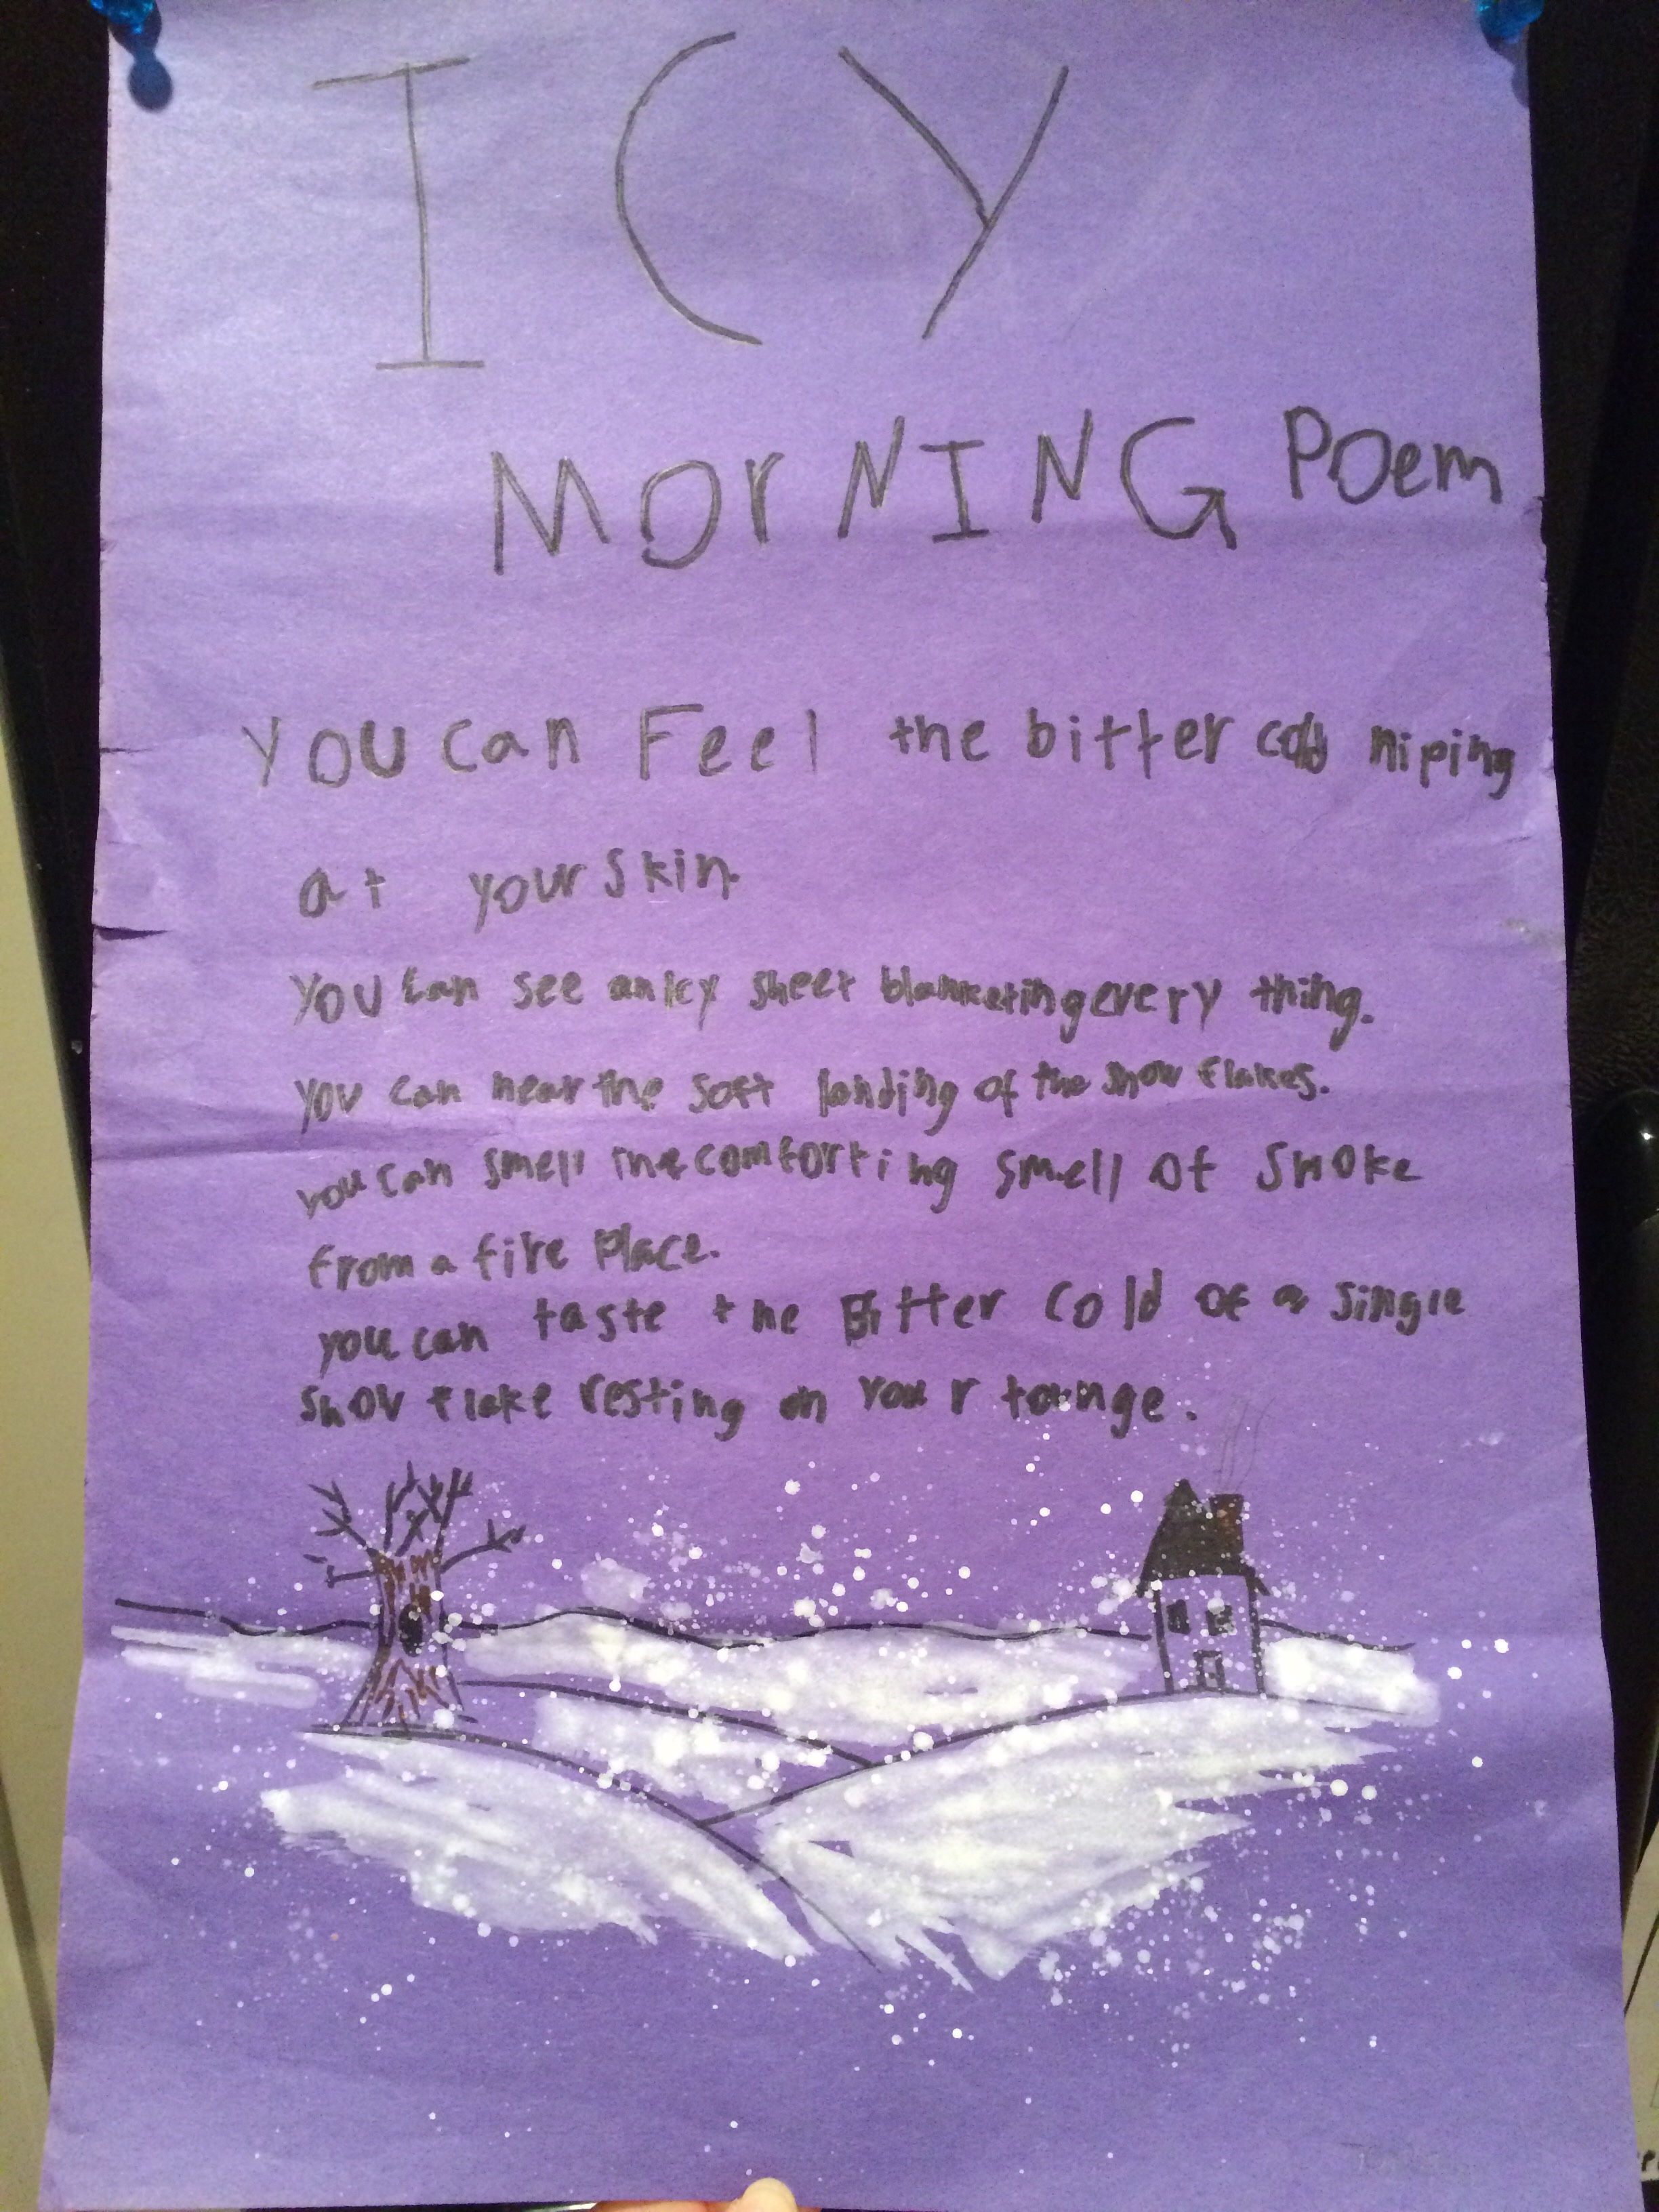 ICY
MOrNING POem
YOU can Feel the bitter cold niping
at your skin.
YOU can see an icy sheet blanketing every thing.
you can hear the soft landing of the snow flakes.
you can smell the comforting smell of smoke
from a fire Place.
you can taste the Bitter cold of a single
snow flake resting on your tounge.